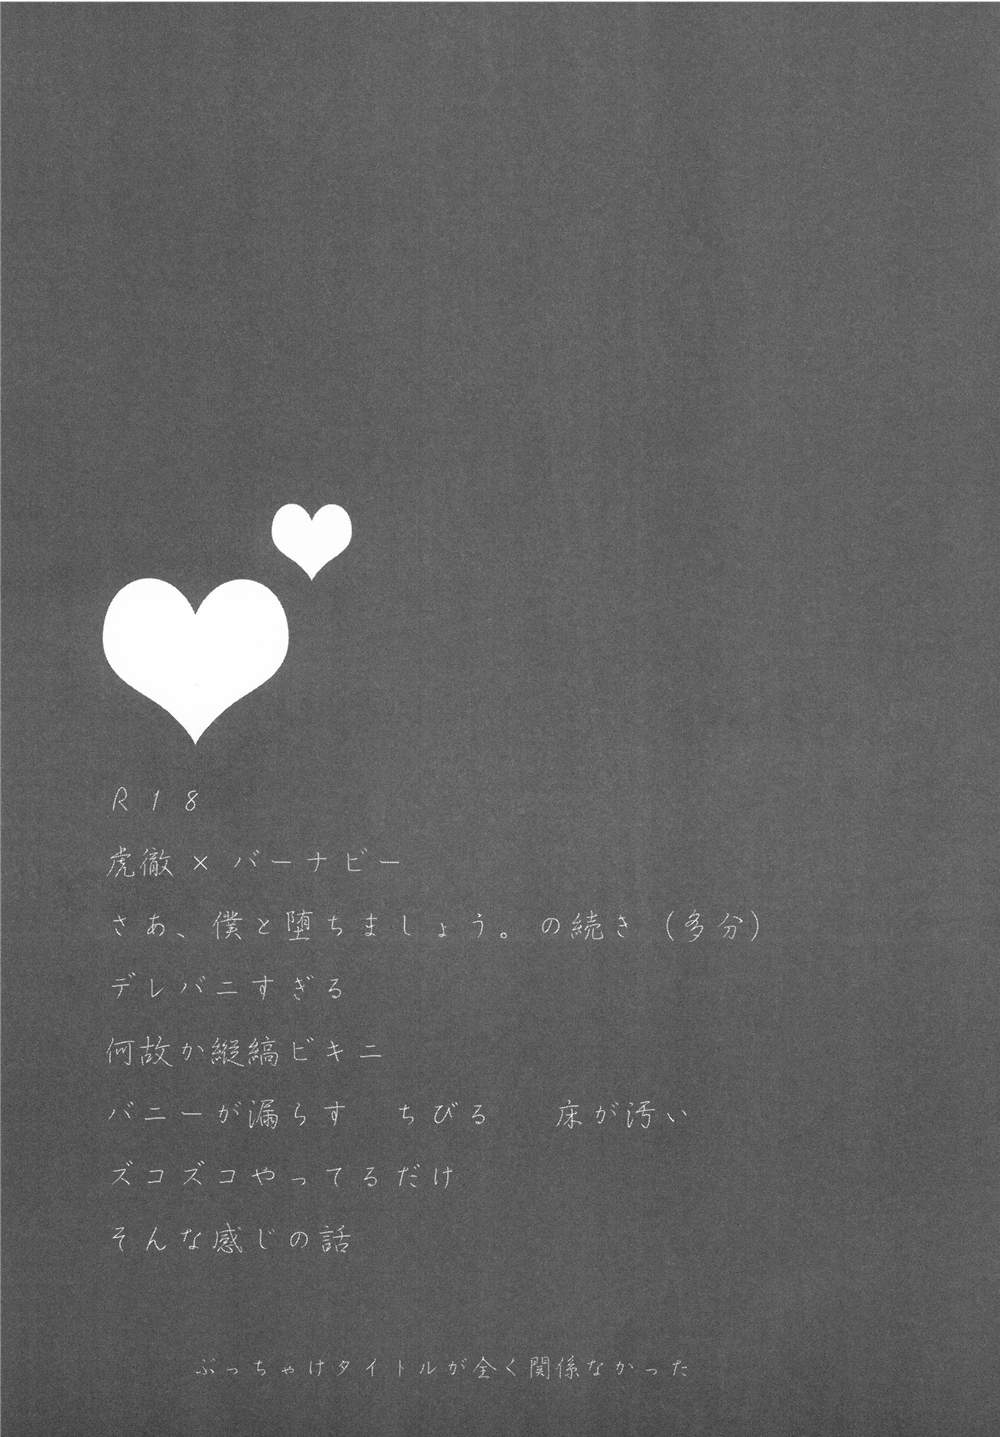 R18
虎徹×バーナビー
さあ、僕と堕ちましょう。の続き（多分）
デレバニすぎる
何故か縦縞ビキニ
バニーが漏らす　ちびる　床が汚い
ズコズコやってるだけ
そんな感じの話
ぶっちゃけタイトルが全く関係なかった